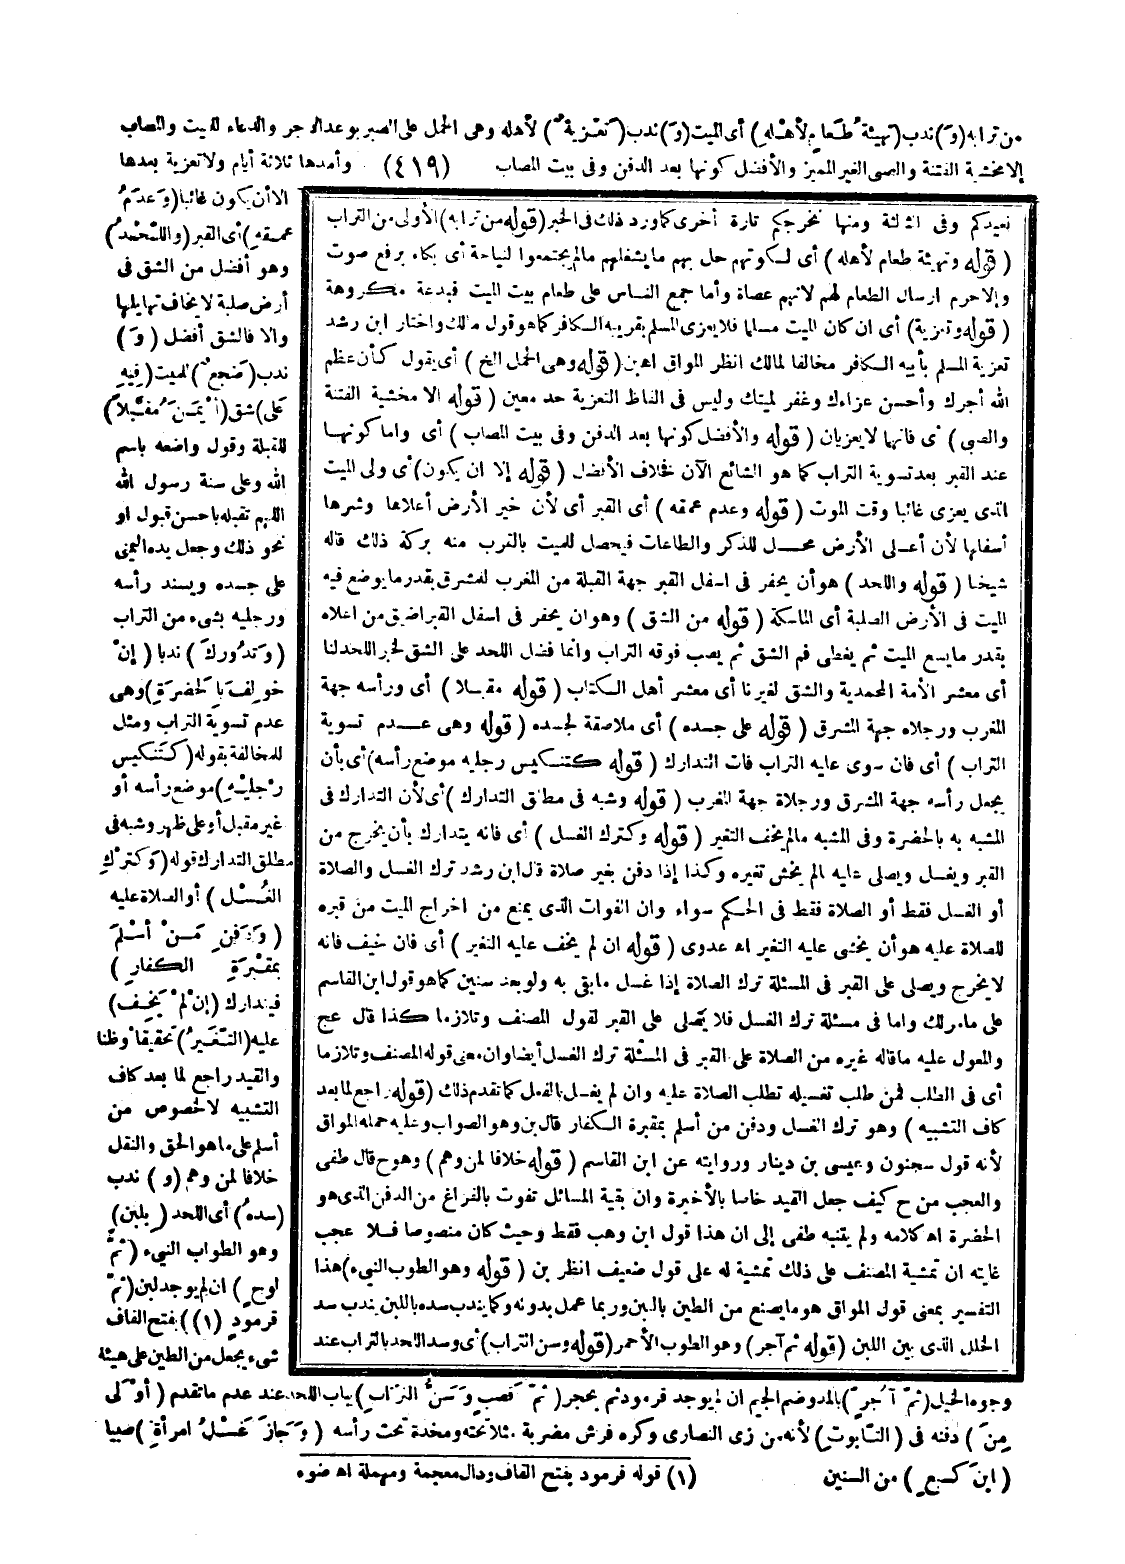 من ترابه (وَ) ندب (تهيئةُ طَعامٍ لأهلهِ) أى الميت (وَ) ندب (تَعْزيةٌ) لأهله وهى الحمل على الصبر بوعد الاجر والدعاء للميت والمصاب
إلا مخشية الفتنة والصبى الغير المميز والأفضل كونها بعد الدفن وفى بيت المصاب (٤١٩) وأمدها ثلاثة أيام ولا تعزية بعدها
الا أن يكون غائبا (وَعَدَمُ
عمقهِ) أى القبر (واللَّحْدُ)
وهو أفضل من الشق فى
أرض صلبة لا يخاف تهايلها
والا فالشق أفضل (وَ)
ندب (ضَجْعٌ) للميت (فِيهِ
عَلَى) شق (أيْمَنَ مُقْبَلاً)
للقبلة وقول واضعه باسم
الله وعلى سنة رسول الله
اللهم تقبله باحسن قبول او
نحو ذلك وجعل يده اليمنى
على جسده ويسند رأسه
ورجليه بشىء من التراب
(وَتُدُورِكَ) ندبا (إنْ
خولِفَ بِالحَضرَةِ) وهى
عدم تسوية التراب ومثل
للمخالفة بقوله (كَتَنْكيس
رِجْليْهِ) موضع رأسه أو
غير مقبل أو على ظهر وشبه فى
مطلق التدارك قوله (وَكَتَرْكِ
الغُسْلِ) أو الصلاة عليه
(وَدَفنِ مَنْ أسْلمَ
بمقْبَرَةِ الكفارِ)
فيتدارك (إنْ لمْ يُخَفْ)
عليه (التَّغَيرُ) تحقيقا وظنا
والقيد راجع لما بعد كاف
التشبيه لا لخصوص من
أسلم على ما هو الحق والنقل
خلافا لمن وهم (و) ندب
(سدهُ) أى اللحد (بِلبِنٍ)
وهو الطوب النىء (ثمَّ
لوحٍ) ان لم يوجد لبن (ثمَّ
قرمودٍ (١)) بفتح القاف
شىء يجعل من الطين على هيئة
نعيدكم وفى الثالثة ومنها نخرجكم تارة أخرى كما ورد ذلك فى الخبر (قوله من ترابه) الأولى من التراب
(قوله وتهيئة طعام لأهله) أى لكونهم حل بهم ما يشغلهم مالم يجتمعوا لنياحة أى بكاء برفع صوت
وإلا حرم ارسال الطعام لهم لانهم عصاة وأما جمع الناس على طعام بيت الميت فبدعة مكروهة
(قوله وتعزية) أى ان كان الميت مسلما فلا يعزى المسلم بقريبه الكافر كما هو قول مالك واختار ابن رشد
تعزية المسلم بأبيه الكافر مخالفا لمالك انظر المواق اه بن (قوله وهى الحمل الخ) أى يقول كأن عظم
الله أجرك وأحسن عزاءك وغفر لميتك وليس فى الفاظ التعزية حد معين (قوله الا مخشية الفتنة
والصبى) أى فانها لا يعزيان (قوله والأفضل كونها بعد الدفن وفى بيت المصاب) أى واما كونها
عند القبر بعد تسوية التراب كما هو الشائع الآن فخلاف الأفضل (قوله إلا ان يكون) أى ولى الميت
الذى يعزى غائبا وقت الموت (قوله وعدم عمقه) أى القبر أى لأن خير الأرض أعلاها وشرها
أسفلها لأن أعلى الأرض محل للذكر والطاعات فيحصل للميت بالقرب منه بركة ذلك قاله
شيخنا (قوله واللحد) هو أن يحفر فى اسفل القبر جهة القبلة من المغرب للمشرق بقدر ما يوضع فيه
الميت فى الأرض الصلبة أى الماسكة (قوله من الشق) وهو ان يحفر فى اسفل القبر اضيق من اعلاه
بقدر ما يسع الميت ثم يغطى فم الشق ثم يصب فوقه التراب وانما فضل اللحد على الشق لخبر اللحد لنا
أى معشر الأمة المحمدية والشق لغيرنا أى معشر أهل الكتاب (قوله مقبلا) أى ورأسه جهة
المغرب ورجلاه جهة المشرق (قوله على جسده) أى ملاصقة لجسده (قوله وهى عدم تسوية
التراب) أى فان سوى عليه التراب فات التدارك (قوله كتنكيس رجليه موضع رأسه) أى بأن
يجعل رأسه جهة المشرق ورجلاه جهة المغرب (قوله وشبه فى مطلق التدارك) أى لأن التدارك فى
المشبه به بالحضرة وفى المشبه مالم يخف التغير (قوله وكترك الغسل) أى فانه يتدارك بأن يخرج من
القبر ويغسل ويصلى عليه مالم يخش تغيره وكذا إذا دفن بغير صلاة قال ابن رشد ترك الغسل والصلاة
أو الغسل فقط أو الصلاة فقط فى الحكم سواء وان الفوات الذى يمنع من اخراج الميت من قبره
للصلاة عليه هو أن يخشى عليه التغير اه عدوى (قوله ان لم يخف عليه التغير) أى فان خيف فانه
لا يخرج ويصلى على القبر فى المسئلة ترك الصلاة إذا غسل ما بقى به ولو بعد سنين كما هو قول ابن القاسم
على ما مر لك واما فى مسئلة ترك الغسل فلا يصلى على القبر لقول المصنف وتلازما كذا قال عج
والمعول عليه ما قاله غيره من الصلاة على القبر فى المسئلة ترك الغسل أيضا وان معنى قوله المصنف وتلازما
أى فى الطلب فمن طلب تغسيله تطلب الصلاة عليه وان لم يغسل بالفعل كما تقدم ذلك (قوله راجع لما بعد
كاف التشبيه) وهو ترك الغسل ودفن من أسلم بمقبرة الكفار قال بن وهو الصواب وعليه حمله المواق
لأنه قول سحنون وعيسى بن دينار وروايته عن ابن القاسم (قوله خلافا لمن وهم) وهو ح قال طفى
والعجب من ح كيف جعل القيد خاصا بالأخيرة وان بقية المسائل تفوت بالفراغ من الدفن الذى هو
الحضرة اه كلامه ولم يتنبه طفى إلى ان هذا قول ابن وهب فقط وحيث كان منصوصا فلا عجب
غايته ان تمشية المصنف على ذلك تمشية له على قول ضعيف انظر بن (قوله وهو الطوب النىء) هذا
التفسير بمعنى قول المواق هو ما يصنع من الطين بالتبن وربما عمل بدونه وكما يندب سده باللبن يندب سد
الخلل الذى بين اللبن (قوله ثم آجر) وهو الطوب الأحمر (قوله وسن التراب) أى وسد اللحد بالتراب عند
وجوه الخيل (ثمّ آجُرّ) بالمد وضم الجيم ان لم يوجد قرمود ثم بحجر (ثمّ قَصبٍ وَسَنُّ التُّرَابِ) بباب اللحد عند عدم ما تقدم (أوْلَى
مِنَ) دفنه فى (التَّابوتِ) لأنه من زى النصارى وكره فرش مضربة مثلا تحته ومخدة تحت رأسه (وَجازَ غَسْلُ امرأةٍ) صبيا
(ابنَ كسبعٍ) من السنين
(١) قوله قرمود بفتح القاف ودال معجمة ومهملة اه ضوه